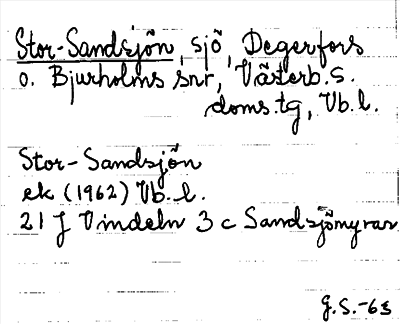 Stor-Sandsjön, sjö, Degerfors
o. Bjurholms snr, Västerb.s.
doms.tg, Vb.l.
Stor-Sandsjön
ek (1962) Vb.l.
21 J Vindeln 3 c Sandsjömyran
G.S.-63